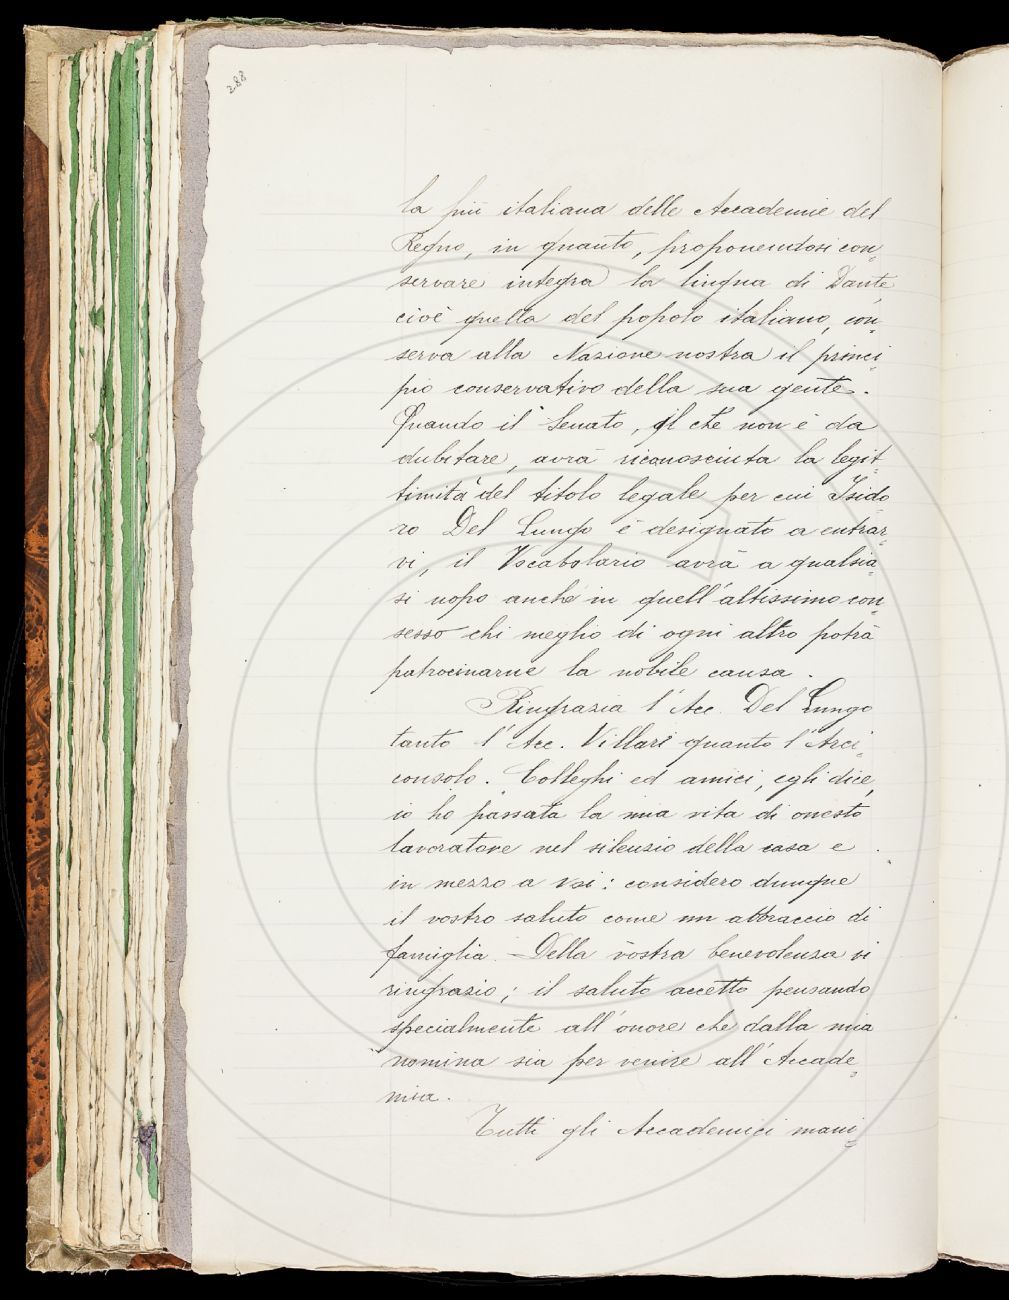 288
la più italiana delle Accademie del
Regno, in quanto, proponendosi con=
servare integra la lingua di Dante,
cioè quella del popolo italiano, con=
serva alla Nazione nostra il princi=
pio conservativo della sua gente.
Quando il Senato, il che non è da
dubitare, avrà riconosciuta la legit=
timità del titolo legale per cui Isido=
ro Del Lungo è designato a entrar=
vi, il Vocabolario avrà a qualsia=
si uopo anche in quell'altissimo con=
sesso chi meglio di ogni altro potrà
patrocinarne la nobile causa.
Ringrazia l'Acc. Del Lungo
tanto l'Acc. Villari quanto l'Arci=
consolo. Colleghi ed amici, egli dice,
io ho passata la mia vita di onesto
lavoratore nel silenzio della casa e
in mezzo a voi: considero dunque
il vostro saluto come un abbraccio di
famiglia. - Della vostra benevolenza vi
ringrazio; il saluto accetto pensando
specialmente all'onore che dalla mia
nomina sia per venire all'Accade=
mia.
Tutti gli Accademici mani=